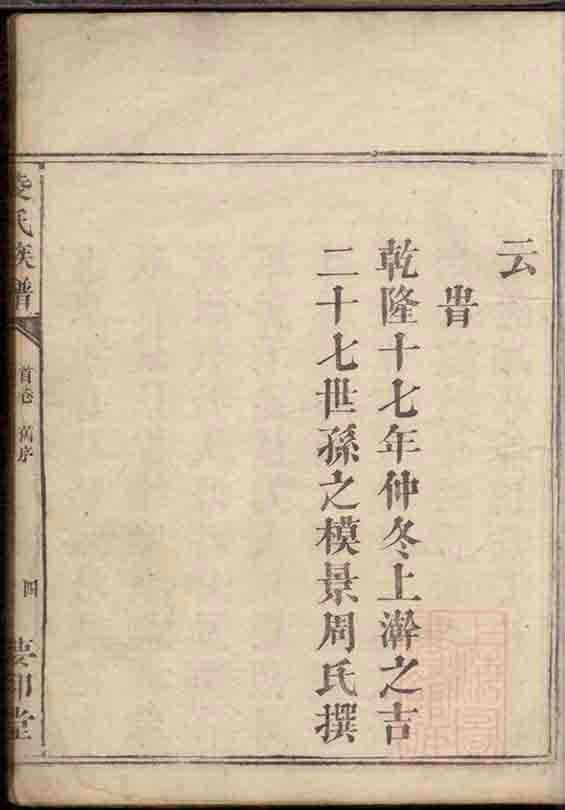 云
旹
乾隆十七年仲冬上澣之吉
二十七世孫之模景周氏撰
氏族譜
首卷 舊序
四
堂